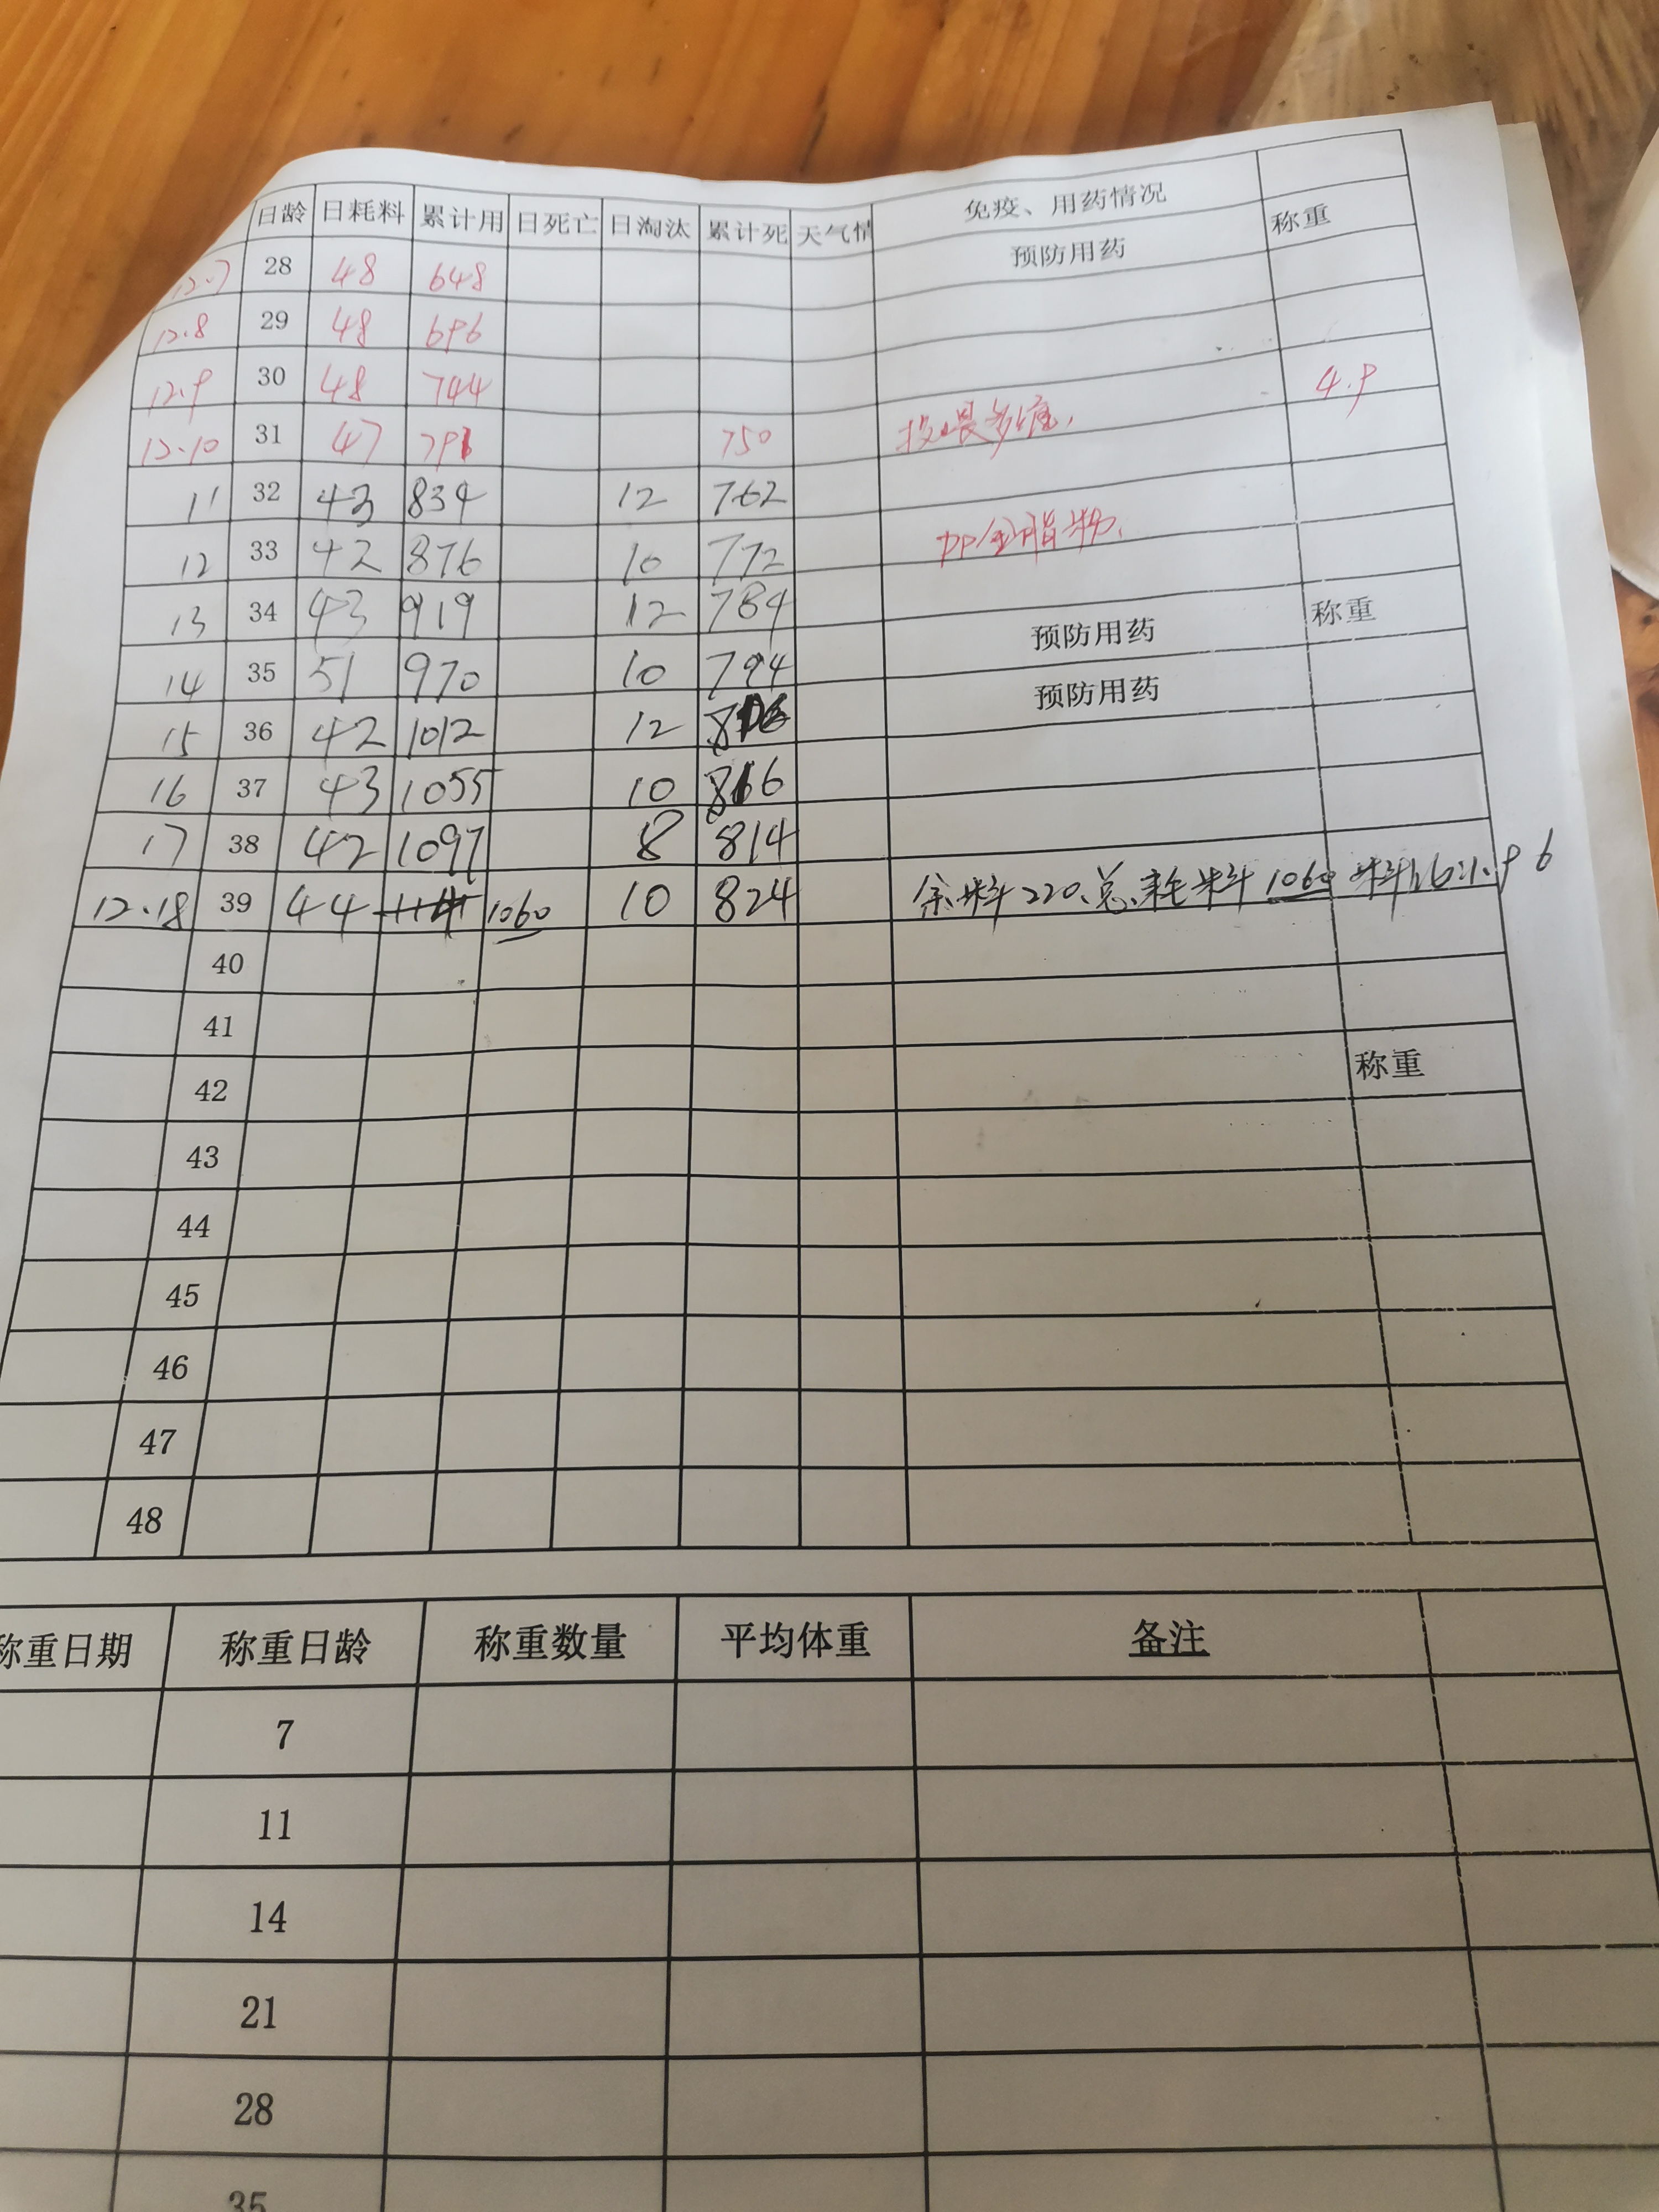 日龄 日耗料 累计用 日死亡 日淘汰 累计死 天气情 免疫、用药情况
12.7 28 48 648 预防用药 称重
12.8 29 48 696
12.9 30 48 744 4.9
12.10 31 47 791 750 投喂多维,
11 32 43 834 12 762
12 33 42 876 10 772
13 34 43 919 12 784 预防用药 称重
14 35 51 970 10 794 预防用药
15 36 42 1012 12
16 37 43 1055 10
17 38 42 1097 8 814
12.18 39 44 1060 10 824 余料220.总耗料1060
40
41
42 称重
43
44
45
46
47
48
称重日期 称重日龄 称重数量 平均体重 备注
7
11
14
21
28
35